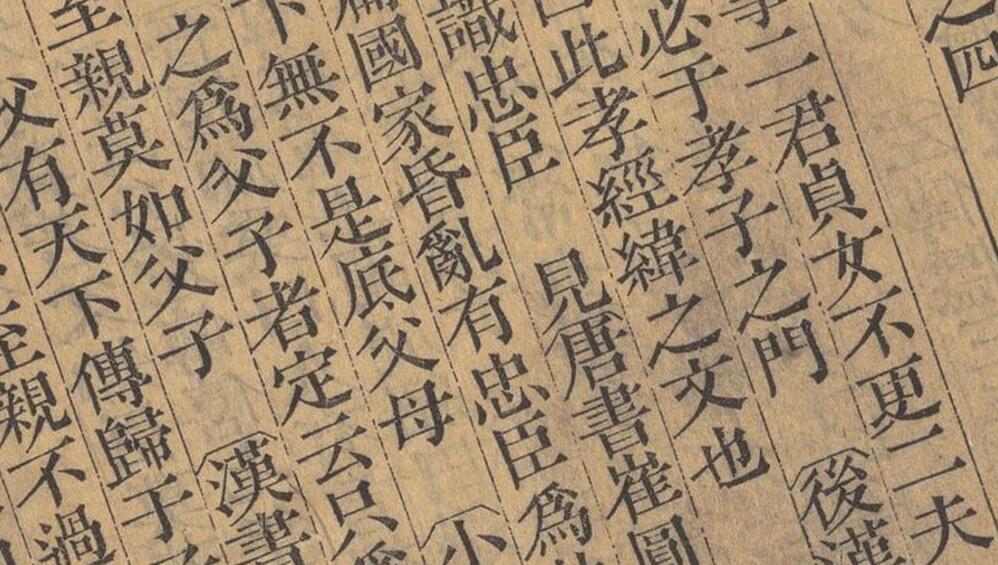 之四
事二君貞女不更二夫
必于孝子之門〔後漢
曰此孝經緯之文也
識忠臣　見唐書崔圓
篇國家昏亂有忠臣　爲
下無不是底父母〔小
之爲父子者定云只爲
至親莫如父子〔漢書
父有天下傳歸于子
至親不過